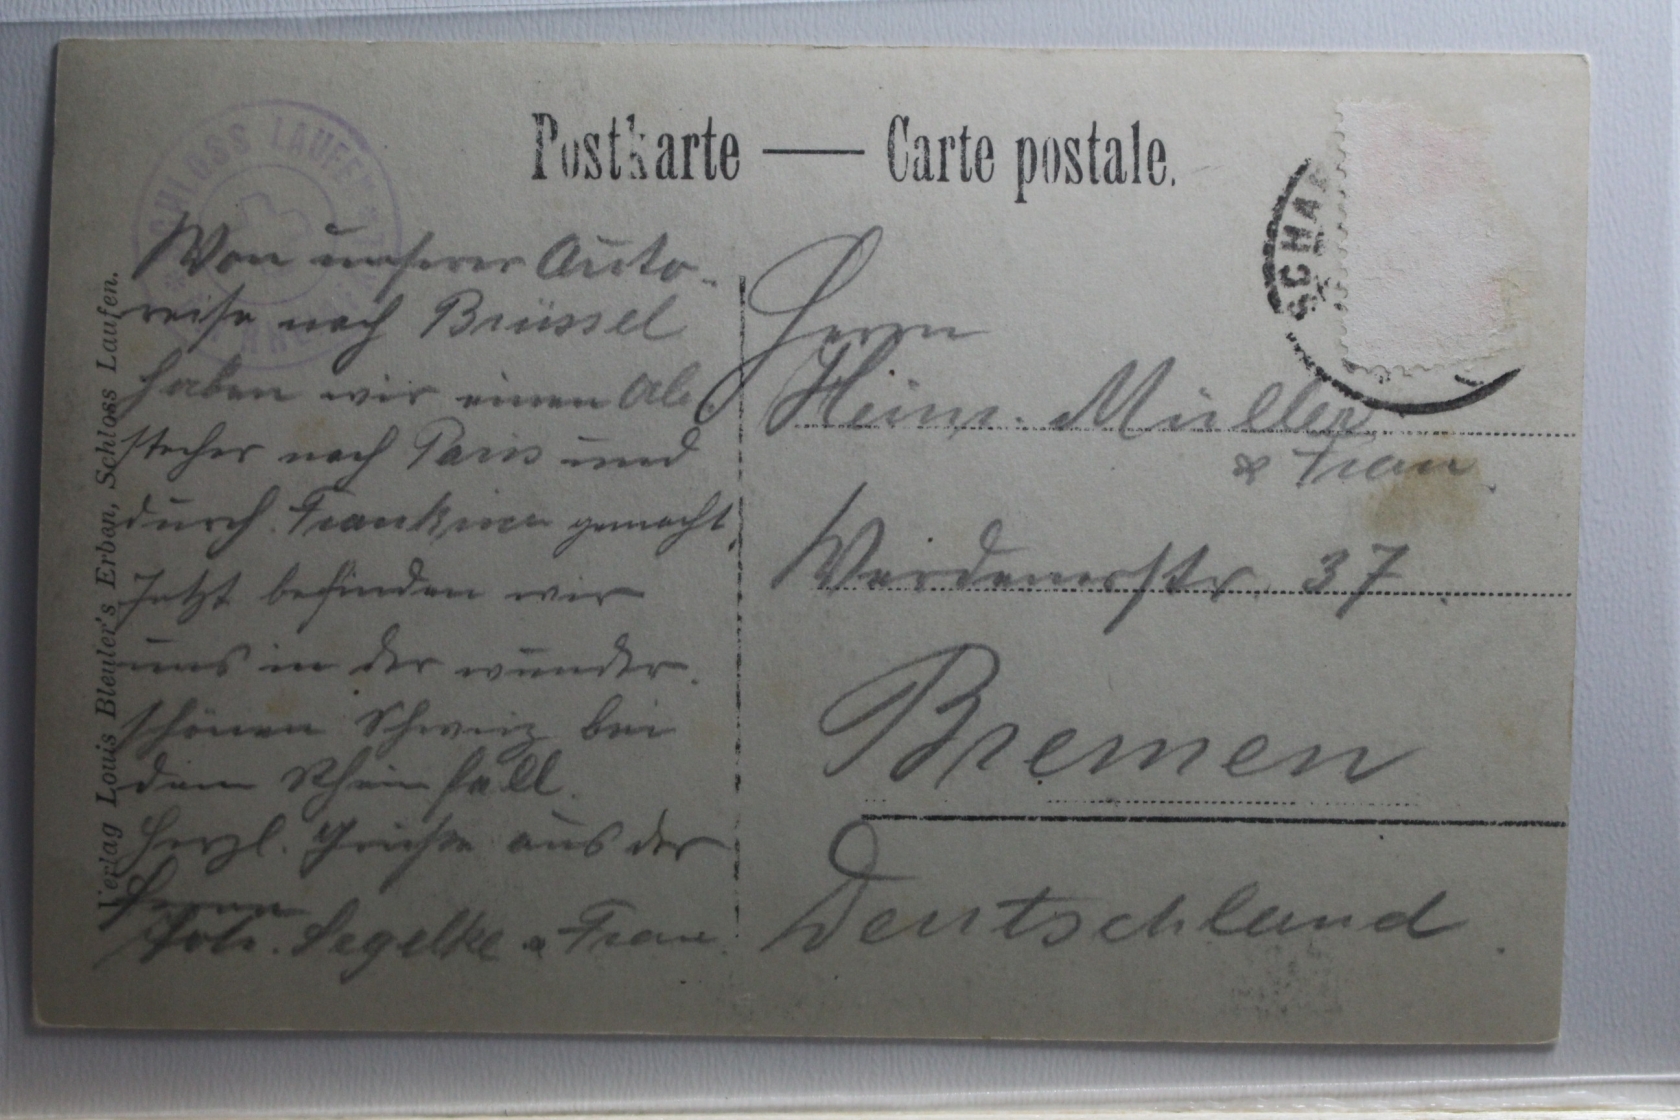 Postkarte — Carte postale.
SCHLOSS LAUFEN
SCHAF
Verlag Louis Bleuler's Erben, Schloss Laufen.
Von unserer Auto-
reise nach Brüssel
haben wir einen Ab-
stecher nach Paris und
durch Frankreich gemacht
Jetzt befinden wir
uns in der wunder-
schönen Schweiz bei
dem Rheinfall.
Herzl. Grüße aus der
Ferne
Joh. Segelke u Frau
Herrn
Heinr. Müller
& Frau
Verdenerstr. 37
Bremen
Deutschland